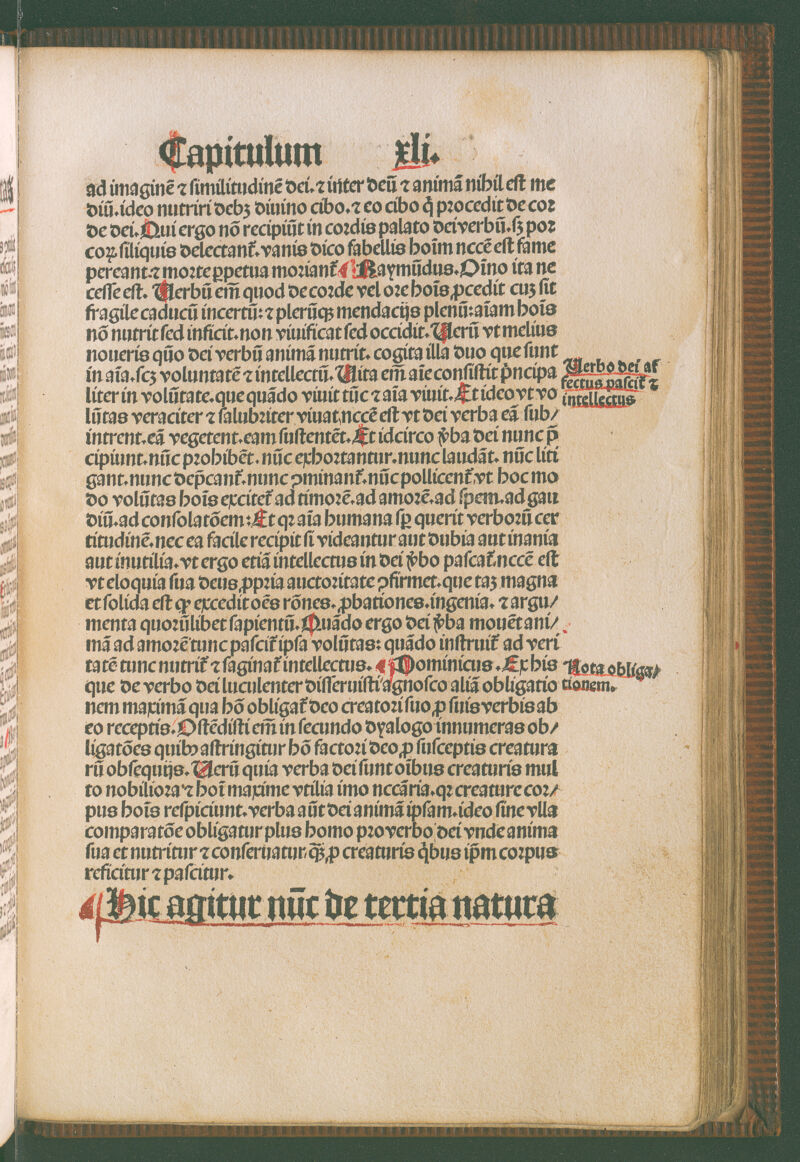 Capitulum xli.
ad imaginē ⁊ ſimilitudinē dei. ⁊ inter deū ⁊ animā nihil eſt me
diū. ideo nutriri debꝫ diuino cibo. ⁊ eo cibo q̇ procedit de cor
de dei. Qui ergo nō recipiūt in cordis palato dei verbū. ſꝫ por
coꝝ ſiliquis delectant᷑. vanis dico fabellis hoīm nccē eſt fame
pereant. ⁊ morte ꝑpetua moriant᷑ ¶ Raymūdus. Oīno ita ne
ceſſe eſt. Verbū em̄ quod de corde vel ore hoīs ꝓcedit cuꝫ ſit
fragile caducū incertū: ⁊ plerūqꝫ mendacijs plenū: aīam hoīs
nō nutrit ſed inficit. non viuificat ſed occidit. Verū vt melius
noueris qūo dei verbū animā nutrit. cogita illa duo que ſunt
in aīa. ſcꝫ voluntatē ⁊ intellectū. Vita em̄ aīe conſiſtit pͥncipa
liter in volūtate. que quādo viuit tūc ⁊ aīa viuit. Et ideo vt vo
lūtas veraciter ⁊ ſalubriter viuat. nccē eſt vt dei verba eā ſub/
intrent. eā vegetent. eam ſuſtentēt. Et idcirco v̄ba dei nunc p̄
cipiunt. nūc prohibēt. nūc exhortantur. nunc laudāt. nūc liti
gant. nunc dep̄cant᷑. nunc ꝯminant᷑. nūc pollicent᷑. vt hoc mo
do volūtas hoīs excitet᷑ ad timorē. ad amorē. ad ſpem. ad gau
diū. ad conſolatōem: Et qꝛ aīa humana ſꝑ querit verborū cer
titudinē. nec ea facile recipit ſi videantur aut dubia aut inania
aut inutilia. vt ergo etiā intellectus in dei v̄bo paſcat᷑. nccē eſt
vt eloquia ſua deus ꝓpria auctoritate ꝯfirmet. que taꝫ magna
et ſolida eſt ꝙ excedit oēs rōnes. ꝓbationes. ingenia. ⁊ argu/
menta quorūlibet ſapientū. Quādo ergo dei v̄ba mouēt ani/
mā ad amorē tunc paſcit᷑ ipſa volūtas: quādo inſtruit᷑ ad veri
tatē tunc nutrit᷑ ⁊ ſaginat᷑ intellectus. ¶ Dominicus. Ex his
que de verbo dei luculenter diſſeruiſti agnoſco aliā obligatio
nem maximā qua hō obligat᷑ deo creatori ſuo ꝓ ſuis verbis ab
eo receptis. Oſtēdiſti em̄ in ſecundo dyalogo innumeras ob/
ligatōes quibꝰ aſtringitur hō factori deo ꝓ ſuſceptis creatura
rū obſequijs. Verū quia verba dei ſunt oībus creaturis mul
to nobiliora ⁊ hoī maxime vtilia imo nccāria. qꝛ creature cor/
pus hoīs reſpiciunt. verba aūt dei animā ipſam. ideo ſine vlla
comparatōe obligatur plus homo pro verbo dei vnde anima
ſua et nutritur ⁊ conſeruatur. qꝫ̄ ꝓ creaturis q̇bus ip̄m corpus
reficitur ⁊ paſcitur.
¶ Hic agitur nūc de tertia natura
Verbo dei af
fectus paſcit᷑ ⁊
intellectus
Nota obliga/
tionem.